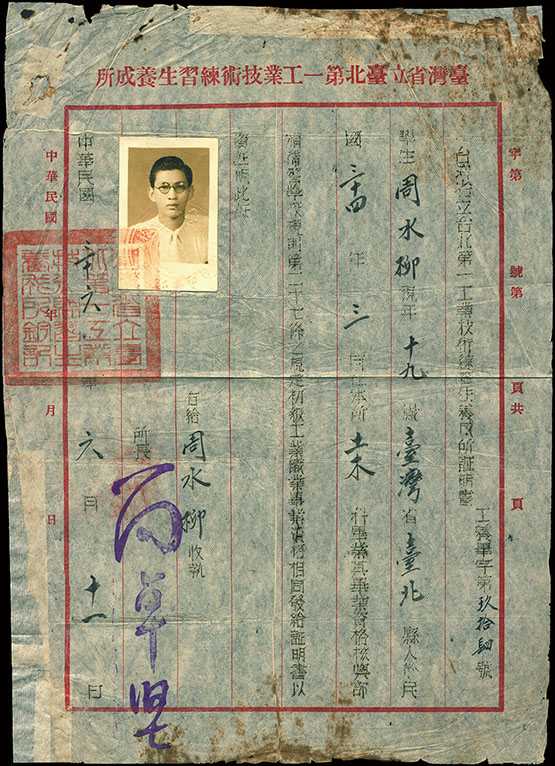 臺灣省立臺北第一工業技術練習生養成所
字第 號第 頁共 頁
台灣省立台北第一工業技術練習生養成所証明書
工養畢字第玖拾肆號
學生周水柳現年十九歲臺灣省臺北縣人於民
國 年三月在本所土木科畢業其畢業資格核與部
頒補習學校規則第二十七條之規定初級工業職業 資格相同發給証明書以
資証明此証
右給周水柳收執
所長
中華民國三十六年六月十一日
中華民國 年 月 日